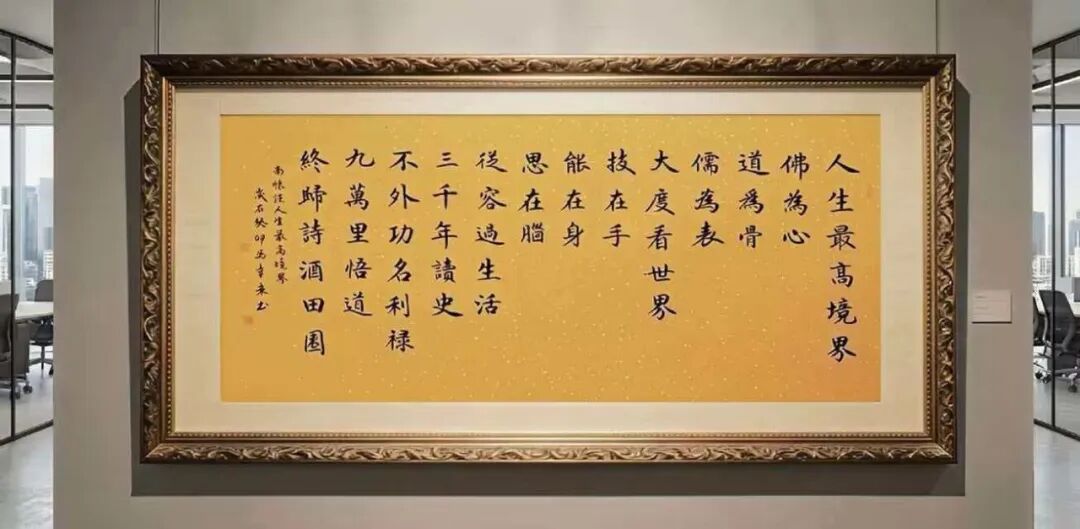 人生最高境界
佛為心
道為骨
儒為表
大度看世界
技在手
能在身
思在腦
從容過生活
三千年讀史
不外功名利祿
九萬里悟道
終歸詩酒田園
南懷瑾人生最高境界
歲在癸卯